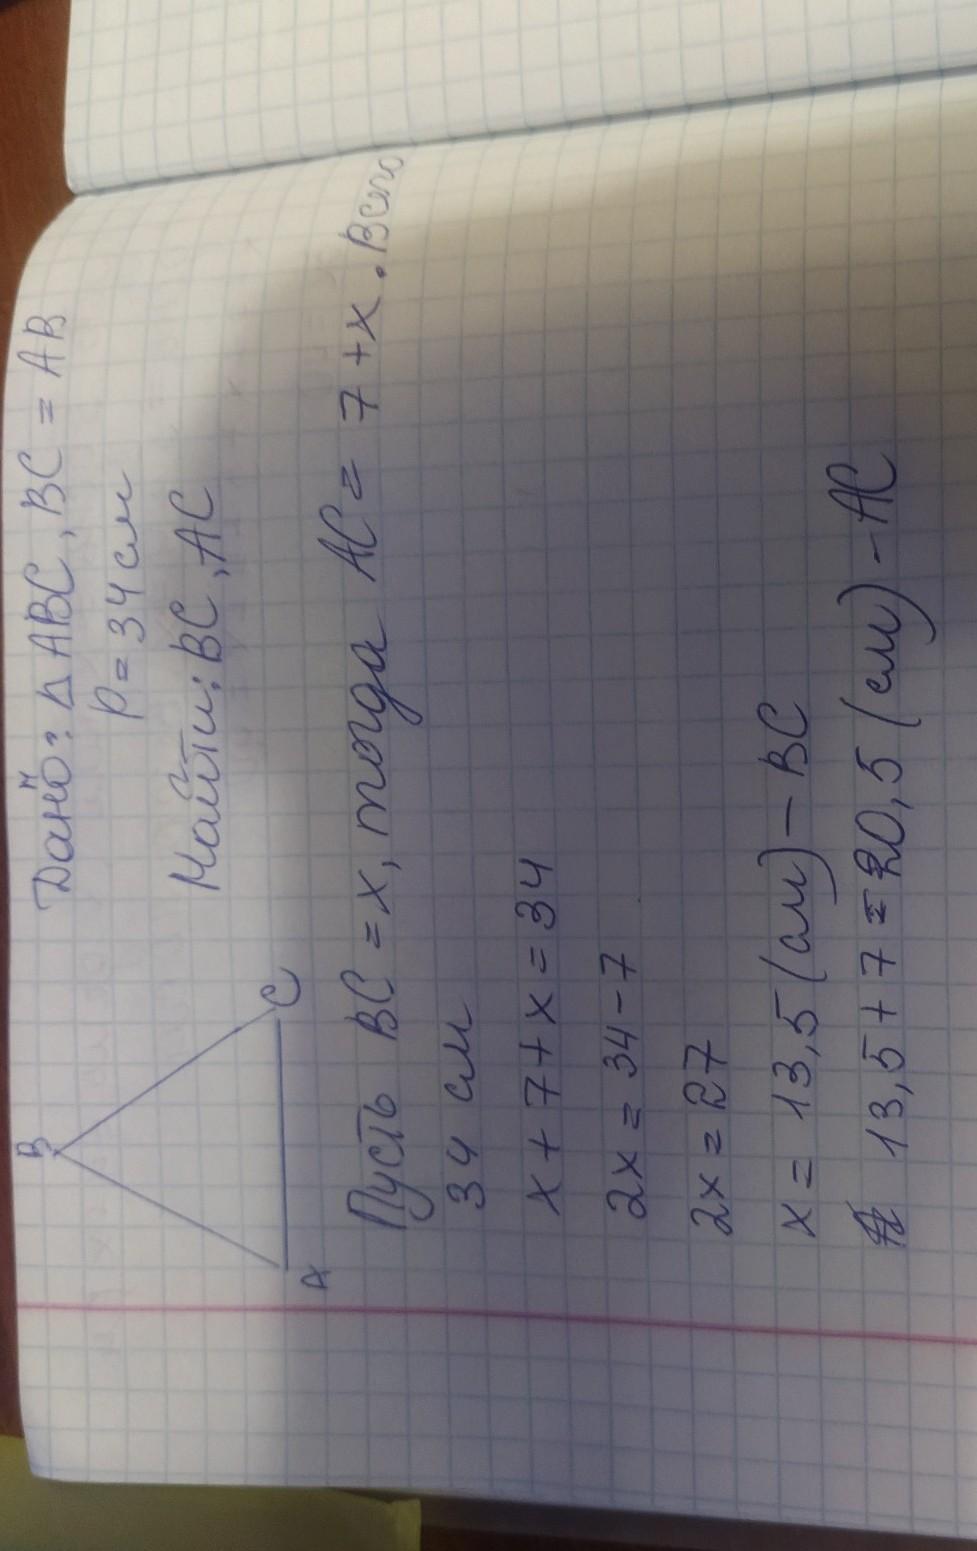 Дано: Δ ABC, BC = AB
P = 34 см
Найти: BC, AC
B
A
C
Пусть BC = x, тогда AC = 7 + x. Всего
34 см
x + 7 + x = 34
2x = 34 - 7
2x = 27
x = 13,5 (см) - BC
13,5 + 7 = 20,5 (см) - AC